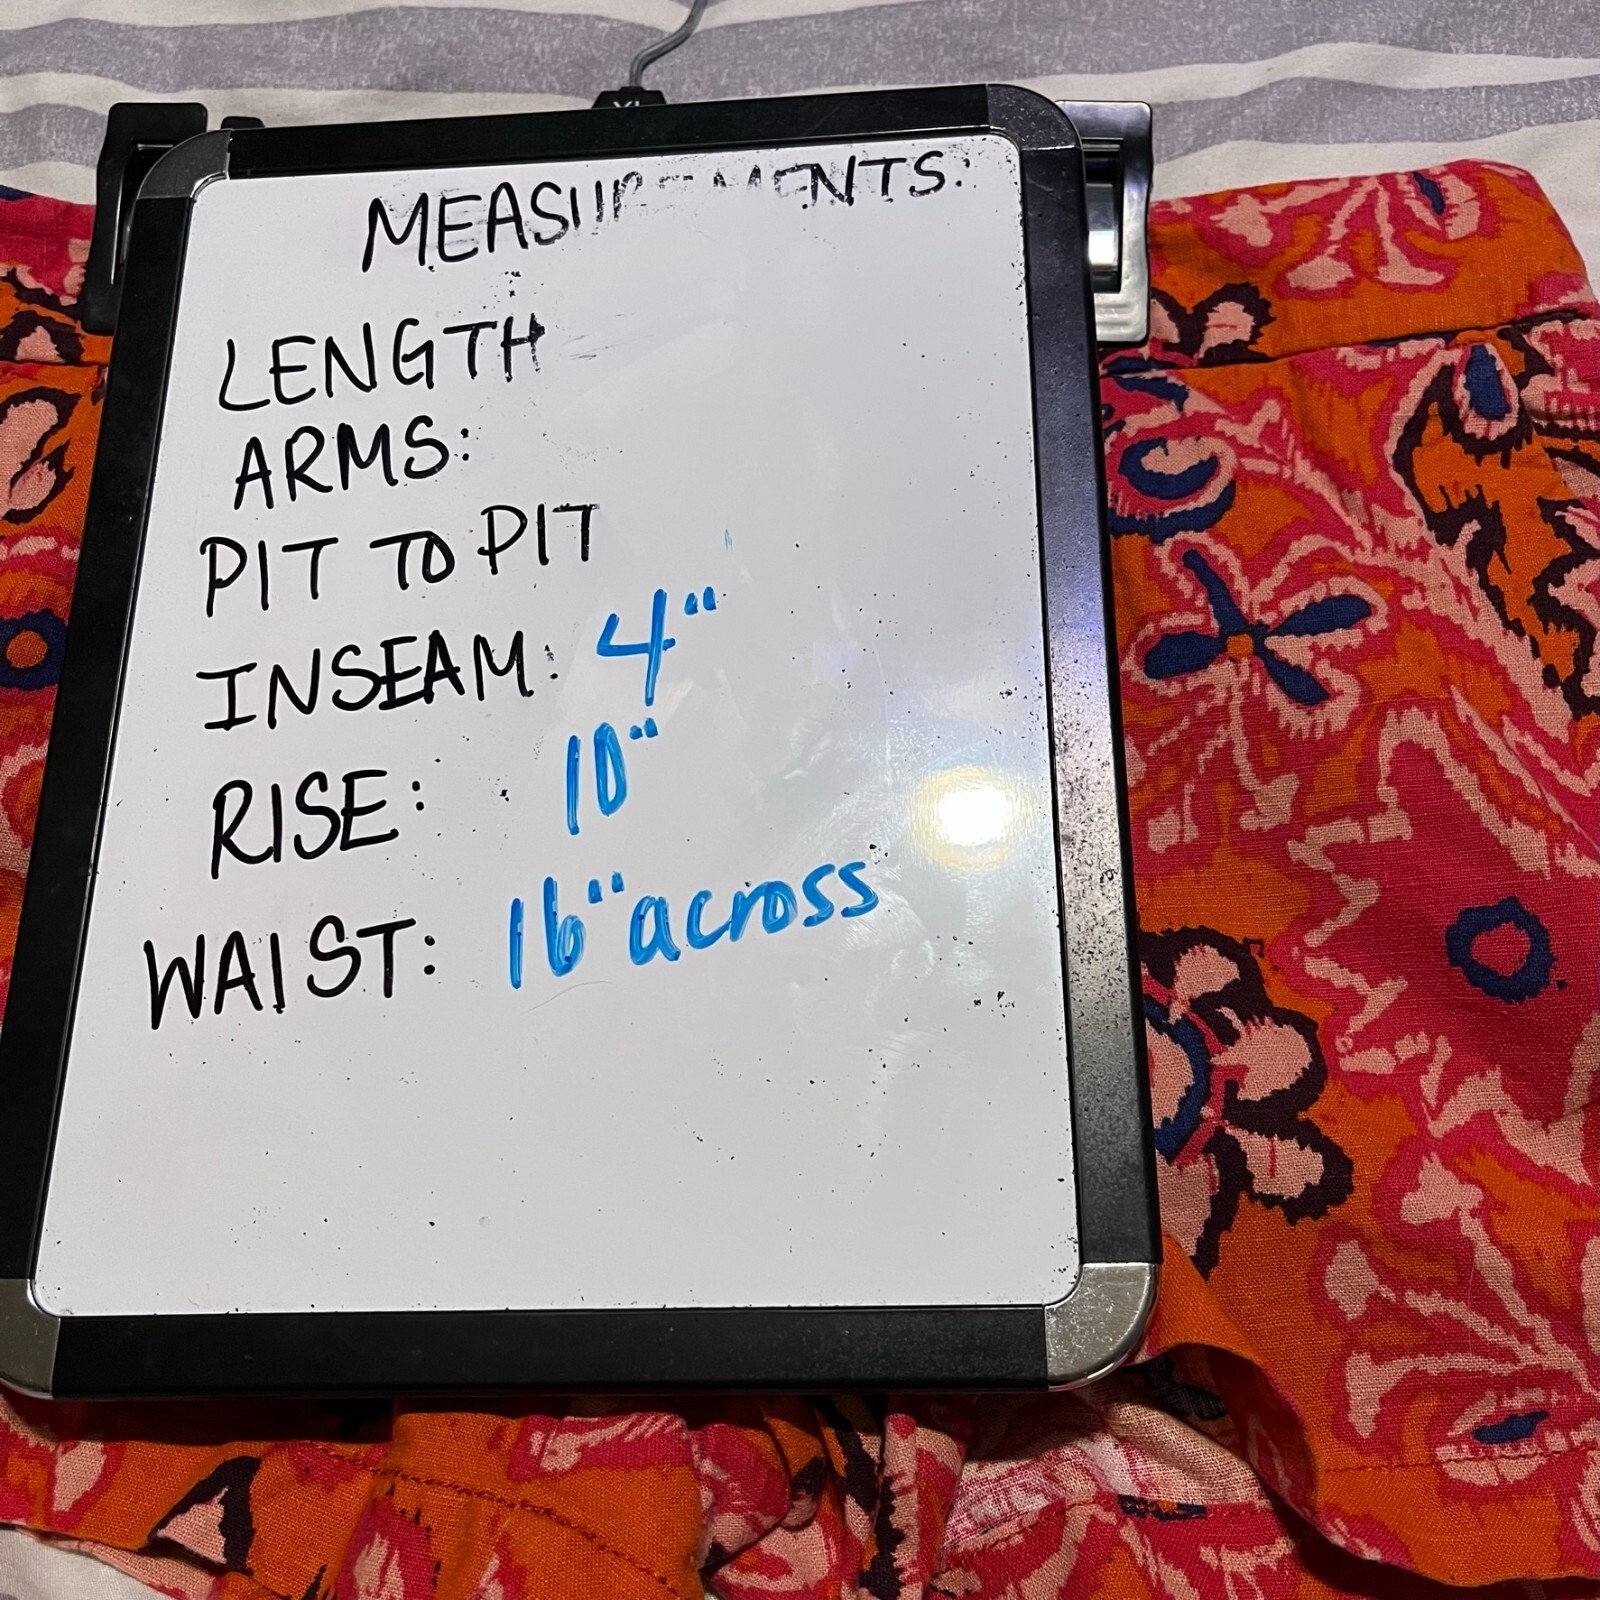 XL
MEASUREMENTS:
LENGTH
ARMS:
PIT TO PIT
INSEAM: 4"
RISE: 10"
WAIST: 16" across